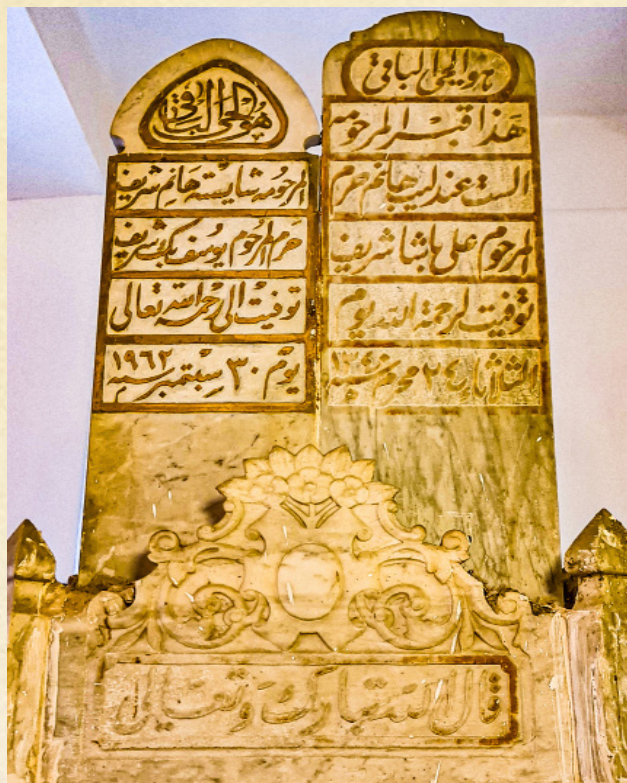 هو الحي الباقي
هذا قبر المرحومه
الست عندليب هانم حرم
المرحوم علي باشا شريف
توفيت لرحمة الله يوم
الثلاثاء ٢٤ محرم سنة
هو الحي الباقي
المرحومه شايسته هانم شريف
حرم المرحوم يوسف بك شريف
توفيت الى رحمة الله تعالى
يوم ٣٠ سبتمبر سنه ١٩٦٢
قال الله تبارك وتعالى